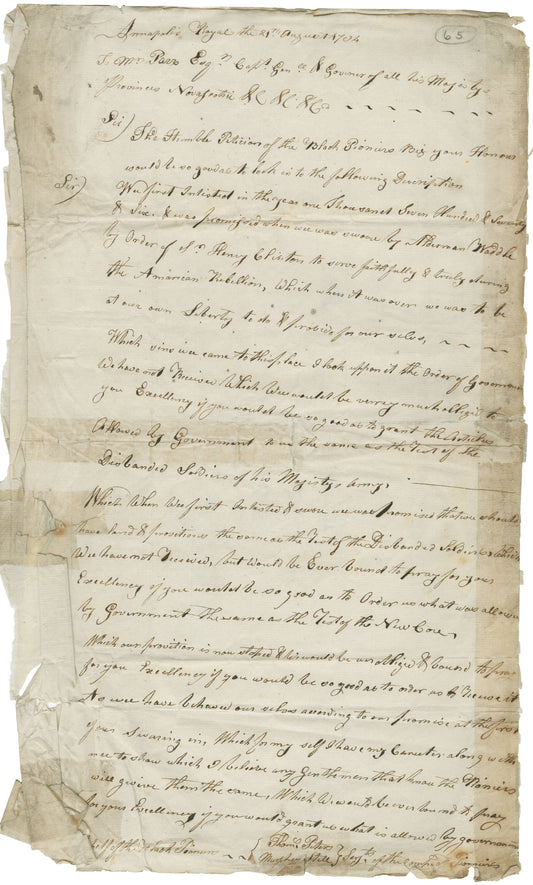 65
Annapolis Royal the 21th August 1784
Esqr Capt Genl & Govner of all his Majestys
Provinces Novascotia &C &C &Ca
Sir) The Humble Petition of the Black Pioniers Beg your Honour
would be so good as to look in to the following Description
Sir) We first Intisted in the year one Thousand Seven Hundred & Seventy
& Six & was promised when we was swore by Alderman Waddle
by Order of Sr Henry Clinton to serve faithfully & truly during
the Amarican Rebellion, Which when it was over we was to be
at our own Liberty to do & provide for our selvs,
Which sins we came to this place I look appon it the Order of Governmen
We have not Received Which We would be verry much obligd to
you Excellency if you would be so good as to grant the Articles
Allowed by Government to us the same as the Test of the
Disbanded Soldiers of his Majestys Army,
Which When We first Intisted & swore we was Promised that we should
have land & provitions the same as the Test of the Disbanded Soldiers Which
We have not Received, but Would be Ever bound to pray for your
Excellency if you would be so good as to Order us what was allowed
by Government the same as the Test of the New
Which our provition is now stoped & We would be obliged & bound to pray
for you Excellency if you would be so good as to order us to it
No wee have behaved our selvs according to our promise at the first
of our Swaring in, Which for my self I have my along with
me to show which I believe any Gentlemen that know the Pioniers
will give them the same, Which We would be ever bound to pray
for your Excellency if you would grant us what is allowed by governmen
of the Black Pionier { Thomas Peters
Murphy Still } Serjts of the Pioniers